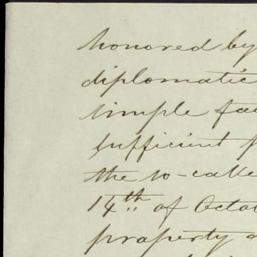 honored by
diplomatic
simple
sufficient
the so-calle
14th of Octo
property